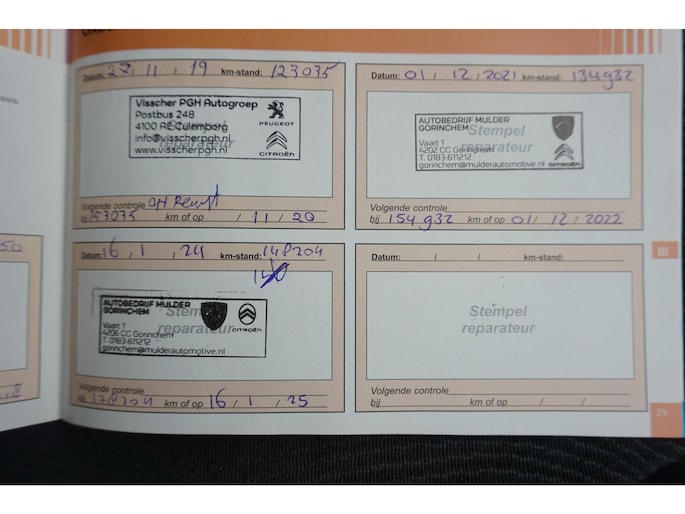 Datum: 27, 11, 19 km-stand: 123035
Visscher PGH Autogroep
Postbus 248
4100 AE Culemborg
info@visscherpgh.nl
www.visscherpgh.nl
PEUGEOT
CITROËN
Stempel
reparateur
Volgende controle OH Remvlst
bij 153035 km of op / 11 / 20
Datum: 01, 12, 2021 km-stand: 134932
AUTOBEDRIJF MULDER
GORINCHEM
Vaart 1
4202 CC Gorinchem
T. 0183-611212
gorinchem@mulderautomotive.nl
CITROËN
Stempel
reparateur
Volgende controle
bij 154932 km of op 01/ 12 / 2022
Datum: 16, 1, 24 km-stand: 148204
AUTOBEDRIJF MULDER
GORINCHEM
Vaart 1
4206 CC Gorinchem
T. 0183-611212
gorinchem@mulderautomotive.nl
CITROËN
Stempel
reparateur
Volgende controle
bij 178204 km of op 16, 1, 25
Datum: / / km-stand:
Stempel
reparateur
Volgende controle
bij km of op / /
29